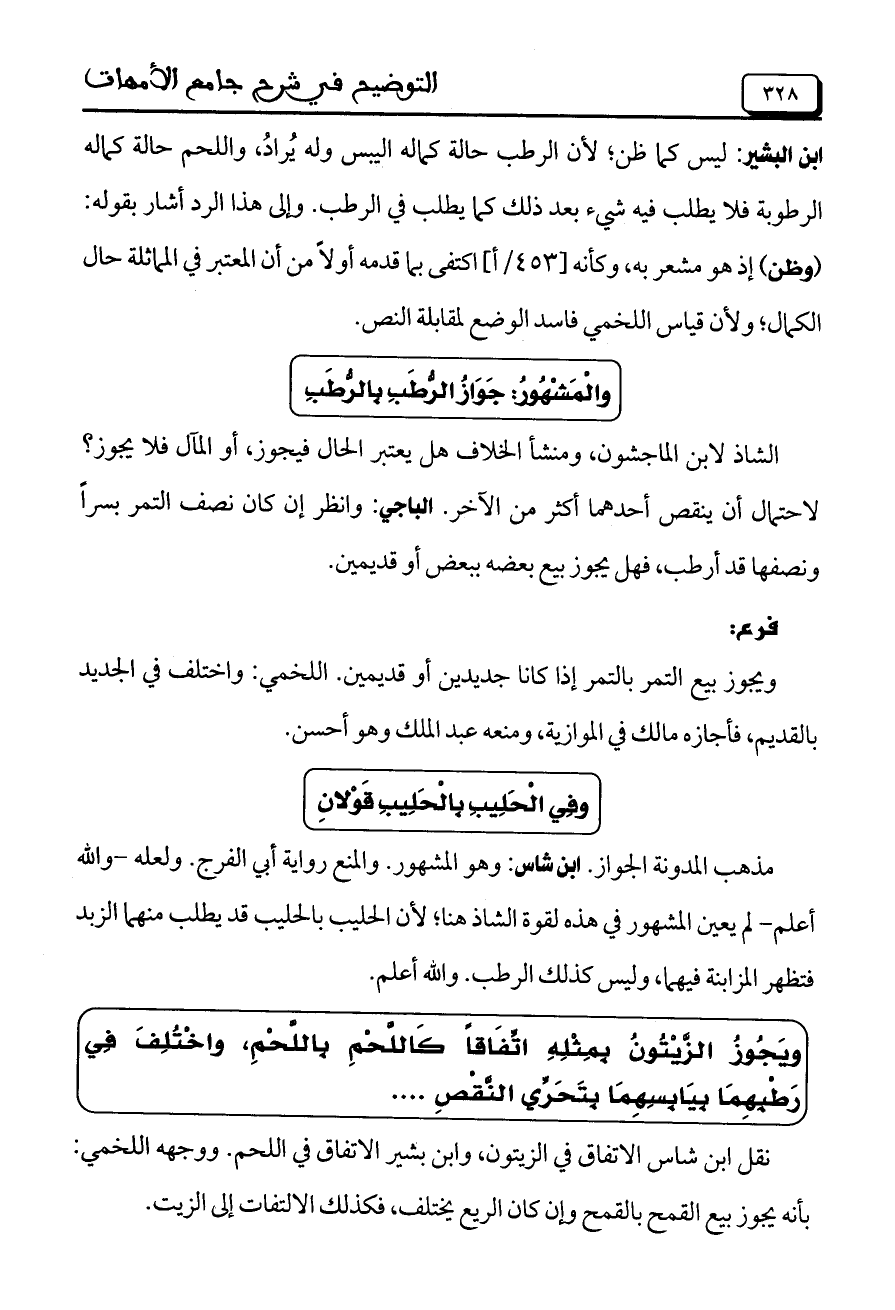 ٣٢٨
التوضيح في شرح جامع الأمهات
ابن البشير: ليس كما ظن؛ لأن الرطب حالة كماله اليبس وله يُرادُ، واللحم حالة كماله
الرطوبة فلا يطلب فيه شيء بعد ذلك كما يطلب في الرطب. وإلى هذا الرد أشار بقوله:
(وظن) إذ هو مشعر به، وكأنه [٤٥٣/ أ] اكتفى بما قدمه أولاً من أن المعتبر في المماثلة حال
الكمال؛ ولأن قياس اللخمي فاسد الوضع لمقابلة النص.
والْمَشْهُورُ: جَوَازُ الرُّطَبِ بِالرُّطَبِ
الشاذ لابن الماجشون، ومنشأ الخلاف هل يعتبر الحال فيجوز، أو المآل فلا يجوز؟
لاحتمال أن ينقص أحدهما أكثر من الآخر. الباجي: وانظر إن كان نصف التمر بسراً
ونصفها قد أرطب، فهل يجوز بيع بعضه ببعض أو قديمين.
فرع:
ويجوز بيع التمر بالتمر إذا كانا جديدين أو قديمين. اللخمي: واختلف في الجديد
بالقديم، فأجازه مالك في الموازية، ومنعه عبد الملك وهو أحسن.
وفِي الْحَلِيبِ بِالْحَلِيبِ قَوْلانِ
مذهب المدونة الجواز. ابن شاس: وهو المشهور. والمنع رواية أبي الفرج. ولعله –والله
أعلم– لم يعين المشهور في هذه لقوة الشاذ هنا؛ لأن الحليب بالحليب قد يطلب منهما الزبد
فتظهر المزابنة فيهما، وليس كذلك الرطب. والله أعلم.
ويَجُوزُ الزَّيْتُونُ بِمِثْلِهِ اتِّفَاقاً كَاللَّحْمِ بِاللَّحْمِ، واخْتُلِفَ فِي
رَطْبِهِمَا بِيَابِسِهِمَا بِتَحَرِّي النَّقْصِ ....
نقل ابن شاس الاتفاق في الزيتون، وابن بشير الاتفاق في اللحم. ووجهه اللخمي:
بأنه يجوز بيع القمح بالقمح وإن كان الريع يختلف، فكذلك الالتفات إلى الزيت.